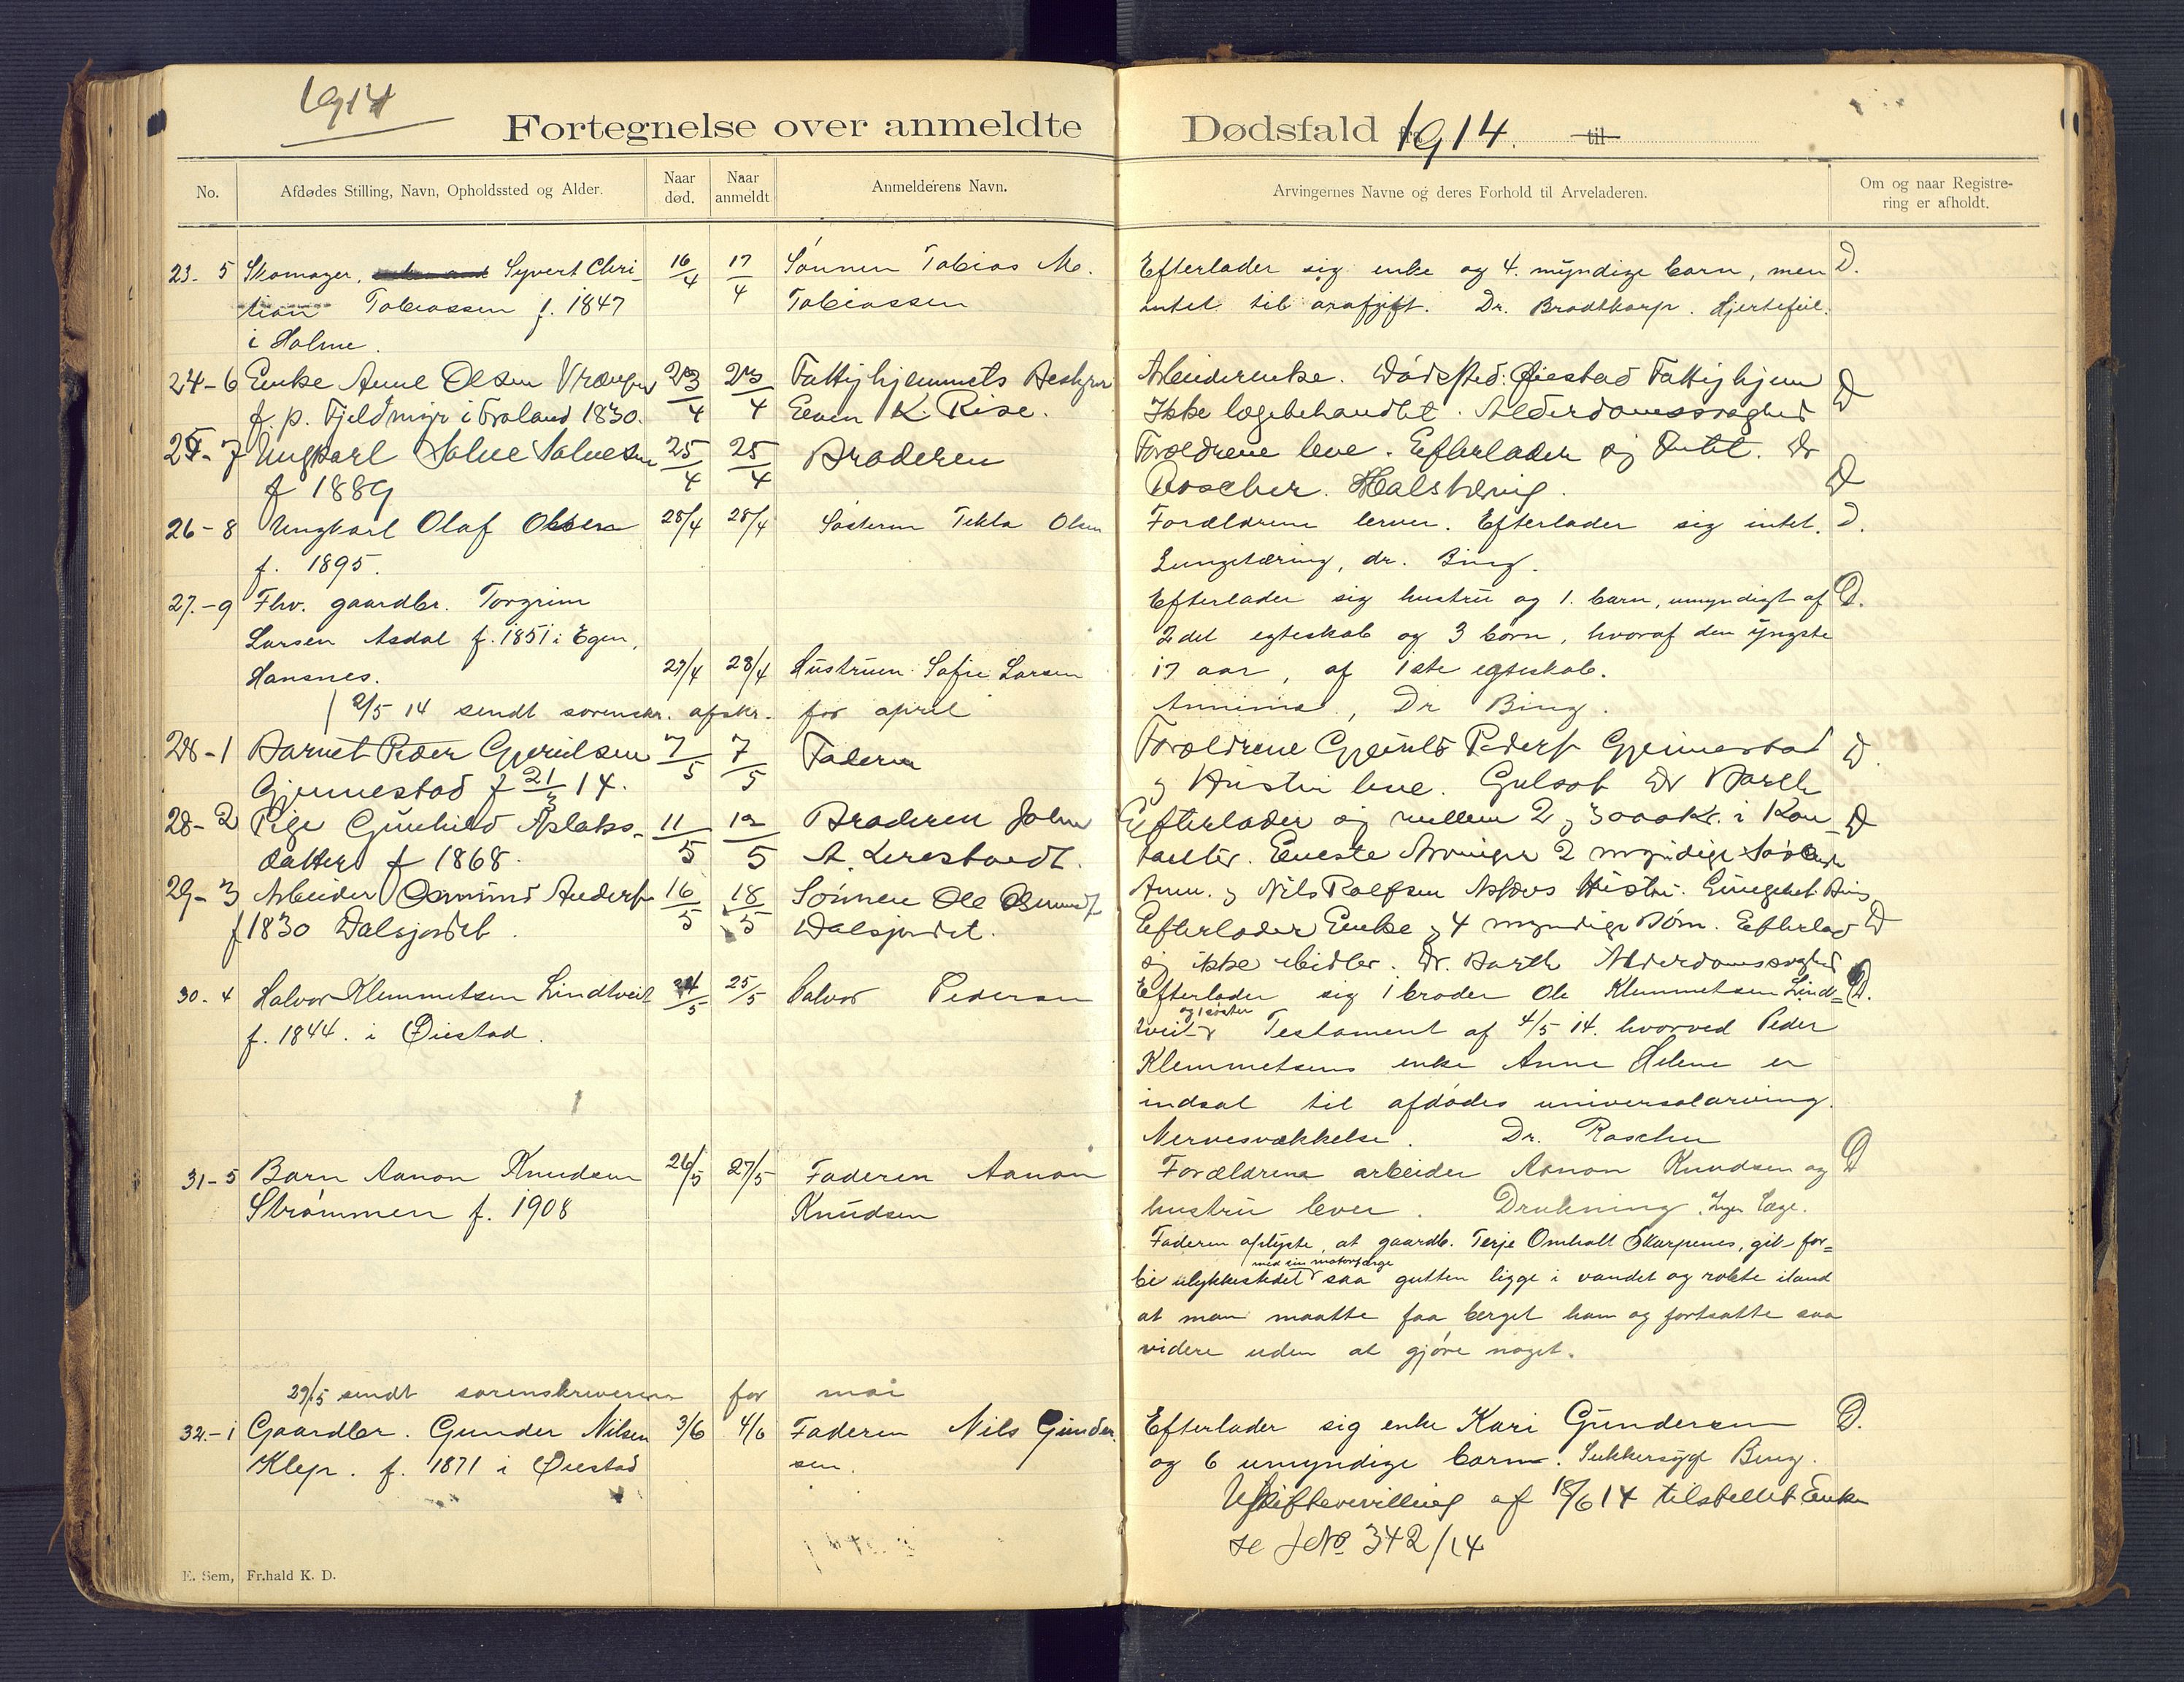 1914
Fortegnelse over anmeldte Dødsfald fra 1914. til
No.
Afdødes Stilling, Navn, Opholdssted og Alder.
Naar død.
Naar anmeldt
Anmelderens Navn.
Arvingernes Navne og deres Forhold til Arveladeren.
Om og naar Registrering er afholdt.
23-5 Skomager, Syvert Chri- 16/4 17/4 Sønnen Tobias M. Efterlader sig enke og 4. myndige barn, men D.
tian Tobiassen f. 1847 Tobiassen intet til arafgift. Dr. Brodtkorp. Hjertefeil.
i Holme.
24-6 Enke Anne Olsen 23/4 23/4 Fattighjemmets Bestyrer Arbeiderenke. Dødssted: Øiestad Fattighjem D
f. p. Fjeldmyr i Froland 1830. Even K. Rise. Ikke lægebehandlet. Alderdomssvaghed
25-7 Ungkarl Salve Salvesen 25/4 25/4 Broderen Forældrene leve. Efterlader sig Intet. Dr
f 1889 Roscher. Halstæring. D
26-8 Ungkarl Olaf Olsen 28/4 28/4 Søsteren Tekla Olsen Forældrene lever. Efterlader sig intet. D.
f. 1895. Lungetæring, dr. Bing.
27.-9 Fhv. gaardbr. Torgrim Efterlader sig hustru og 1. barn, umyndigt af D.
Larsen Asdal f. 1851 i Egen, 2det egteskab og 3 børn, hvoraf den yngste
Hansnes. 27/4 28/4 Hustruen Sofie Larsen 17 aar, af 1ste egteskab.
2/5 14 sendt sorenskr. afskr. for april Dr Bing.
28-1 Barnet Peder Gjerulsen 7/5 7/5 Faderen Forældrene Gjeruls Peders. Gjennestad D.
Gjennestad f 21/3 14. og Hustru leve. Gulsot Dr Barth
28-2 Pige Gunhild Aslaks- 11/5 12/5 Broderen John Efterlader sig mellem 2 og 3000 Kr. i Kon- D
datter f 1868. A. Lerestvedt. tanter. Eneste Arvinger 2 myndige Søskende
29-3 Arbeider Osmund Anders. 16/5 18/5 Sønnen Ole Osmunds. Ann. og Nils Roelfsen Hustru. Bing
f 1830 Dalsjordet. Dalsjordet. Efterlader Enke og 4 myndige Børn. Efterlad D
sig ikke Midler. Dr. Barth Alderdomssvaghed
30-4 Halvor Klemmetsen Lindtveit 24/5 25/5 Salvor Pedersen Efterlader sig 1 broder Ole Klemmetsen Lind- D.
og 1 søster
f. 1844. i Øiestad. tveit. Testament af 4/5 14. hvorved Peder
Klemmetsens enke Anne Helene er
indsat til afdødes universalarving.
Nervesvækkelse. Dr. Roscher
31-5 Barn Aanon Knudsen 26/5 27/5 Faderen Aanon Forældrene arbeider Aanon Knudsen og D
Strømmen f. 1908 Knudsen hustru lever. Drukning. Ingen læge.
Faderen oplyste, at gaardb. Terje Omholt Skarpenes, gik for-
med sin motorfærge
bi ulykkestedet saa gutten ligge i vandet og robte iland
at man maatte faa berget ham og fortsatte saa
videre uden at gjøre noget.
29/5 sendt sorenskriveren for mai
32.-1 Gaardbr. Gunder Nilsen 3/6 4/6 Faderen Nils Gunder- Efterlader sig enke Kari Gundersen D.
Klep. f. 1871 i Øiestad sen. og 6 umyndige barn. Sukkersyge Bing.
Uskiftebevilling af 18/6 14 tilstillet Enken
se J No 342/14
E. Sem, Fr.hald K. D.